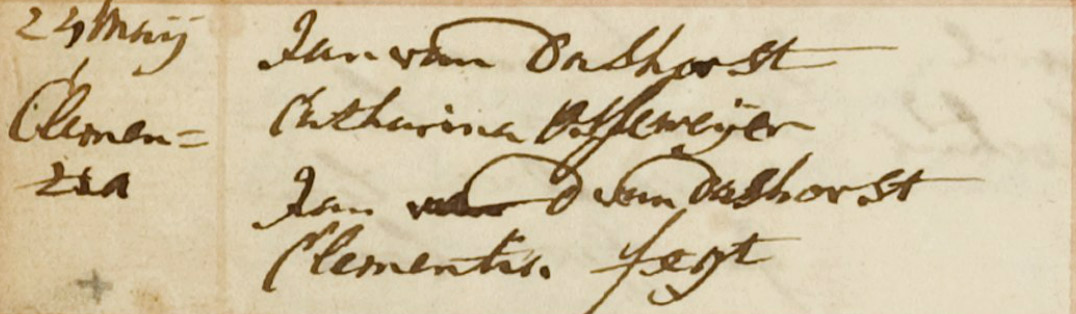 24 Meij
Clemen=
tia
Jan van Dashorst
Catharina Offemeijer
Jan van Dashorst
Clementia fegt